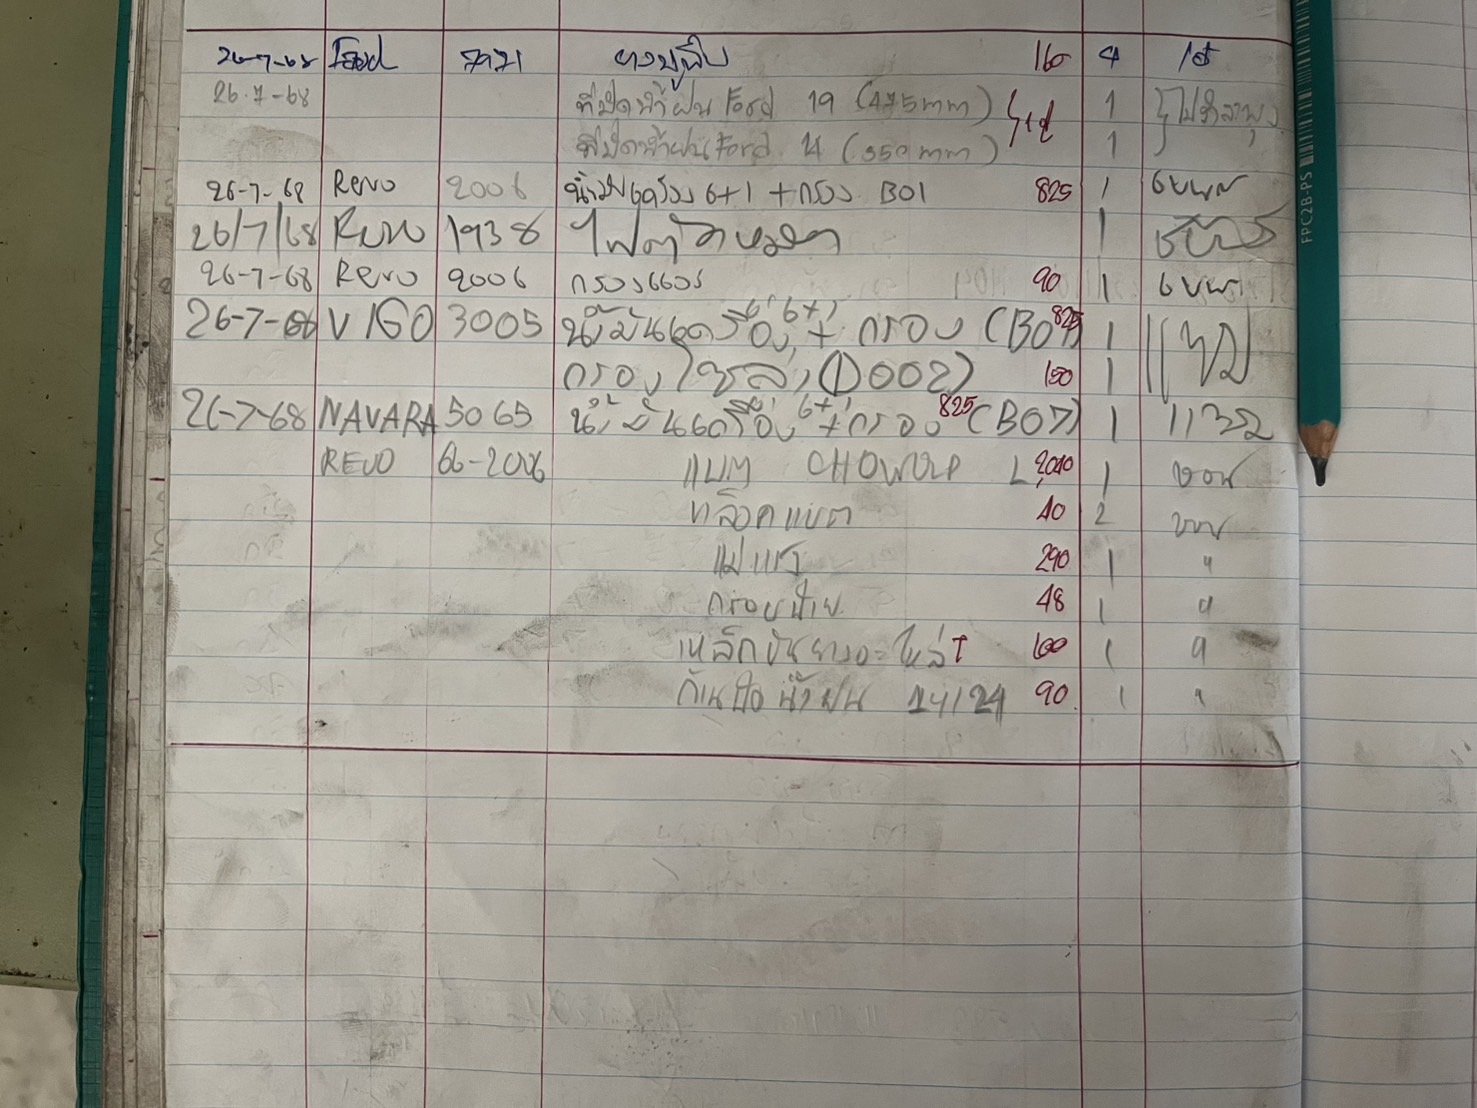 26-7-68 ยางปูพื้น 160 4
26-7-68 ที่ปัดน้ำฝน Ford 19 (475mm) 1
ที่ปัดน้ำฝน Ford 14 (350mm) 1
26-7-68 Revo 2006 น้ำมันเครื่อง 6+1 + กรอง B01 825 1
26/7/68 Revo 1938 ไฟตัดหมอก 1
26-7-68 Revo 2006 กรองแอร์ 90 1
26-7-68 VIGO 3005 น้ำมันเครื่อง 6+1 + กรอง (B07) 825 1
กรองโซล่า (D002) 150 1
26-7-68 NAVARA 5065 น้ำมันเครื่อง 6+1 + กรอง 825 (B07) 1
REVO 66-2006 แบต L 2,040 1
หลีอคแบต 40 2
แม่แรง 290 1 "
กรอบป้าย 48 1 "
เหล็กขันยางอะไหล่ T 100 1 "
ก้านปัดน้ำฝน 14/24 90 1 "
FPC2B-PS